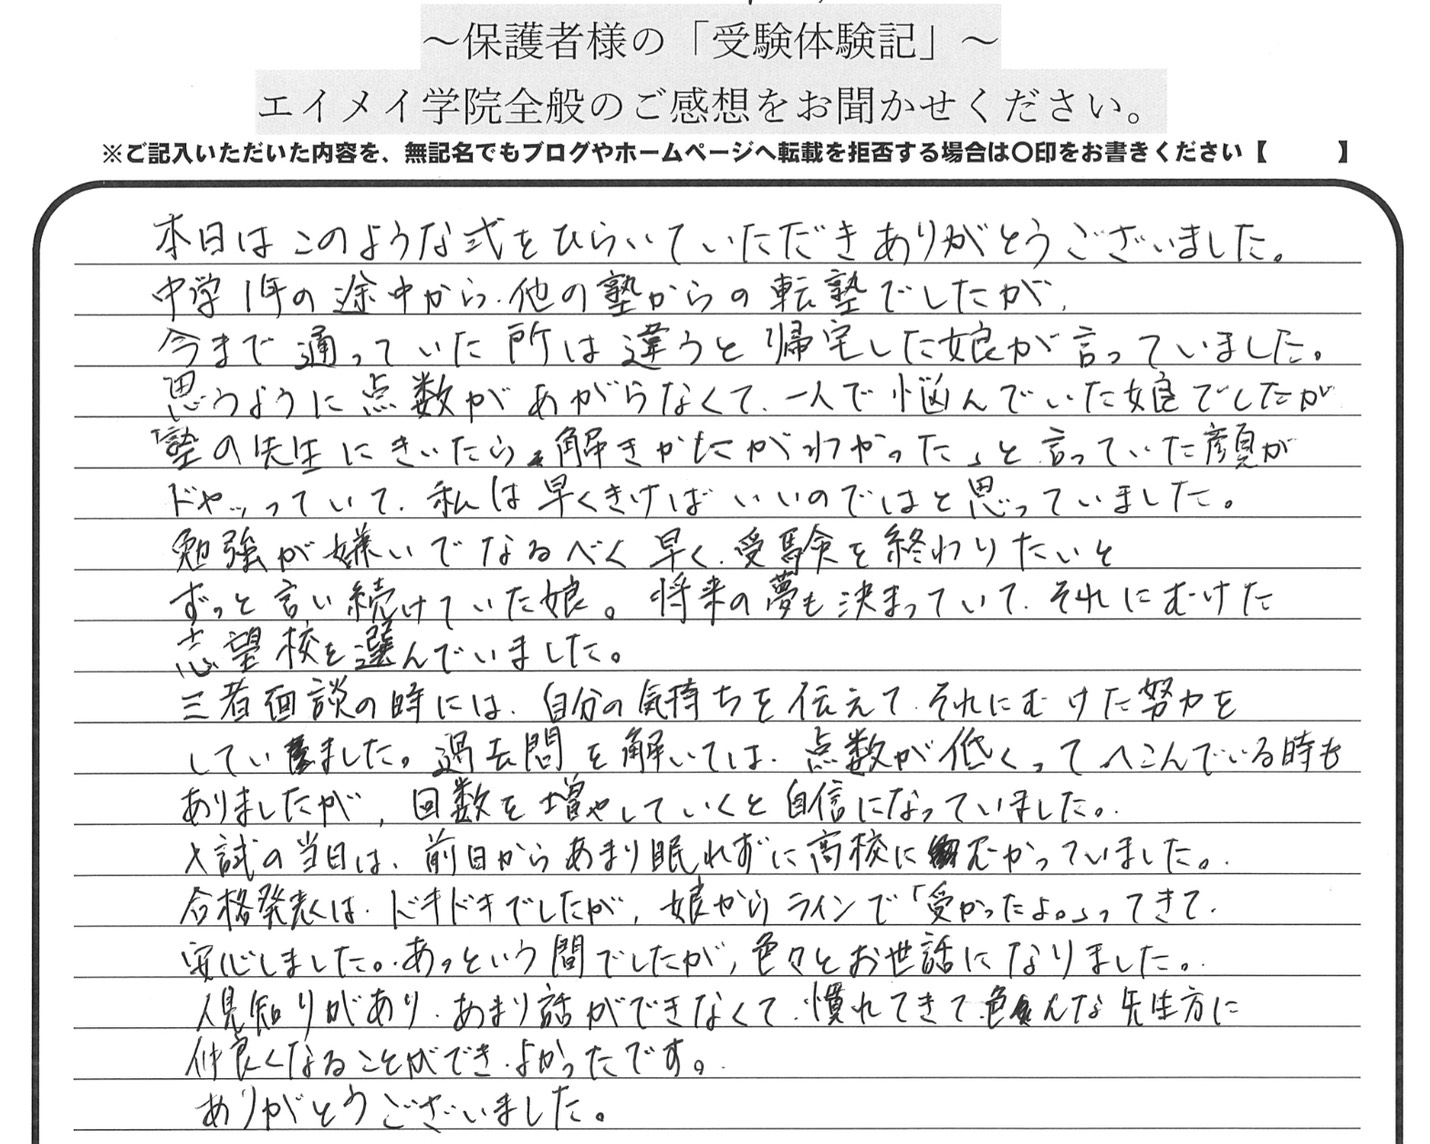 ～保護者様の「受験体験記」～
エイメイ学院全般のご感想をお聞かせください。
※ご記入いただいた内容を、無記名でもブログやホームページへ転載を拒否する場合は〇印をお書きください【　　　】
本日はこのような式をひらいていただきありがとうございました。
中学1年の途中から、他の塾からの転塾でしたが、
今まで通っていた所は違うと帰宅した娘が言っていました。
思うように点数があがらなくて、一人で悩んでいた娘でしたが
「塾の先生にきいたら、解きかたがわかった」と言っていた顔が
ドヤッっていて、私は早くきけばいいのではと思っていました。
勉強が嫌いでなるべく早く、受験を終わりたいと
ずっと言い続けていた娘。将来の夢も決まっていて、それにむけた
志望校を選んでいました。
三者面談の時には、自分の気持ちを伝えて、それにむけた努力を
していました。過去問を解いては、点数が低くってへこんでいる時も
ありましたが、回数を増やしていくと自信になっていました。
入試の当日は、前日からあまり眠れずに高校にむかっていました。
合格発表は、ドキドキでしたが、娘からラインで「受かったよ。」ってきて、
安心しました。あっという間でしたが、色々とお世話になりました。
人見知りがあり、あまり話ができなくて、慣れてきて、色んな先生方に
仲良くなることができ、よかったです。
ありがとうございました。